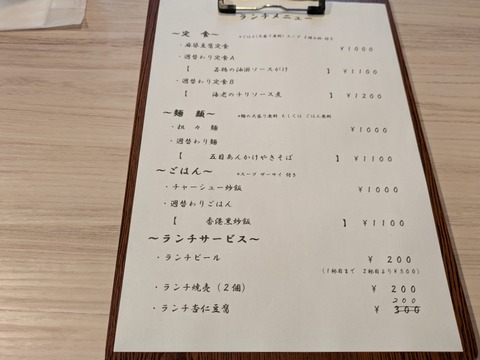 ランチメニュー
～定 食～ *ごはん(大盛り無料) スープ ザーサイ 付き
・麻婆豆腐定食 ¥1000
・週替わり定食A
【 若鶏の油淋ソースがけ 】 ¥1100
・週替わり定食B
【 海老のチリソース煮 】 ¥1200
～麺 類～ *麺の大盛り無料 もしくは ごはん無料
・担々麺 ¥1000
・週替わり麺
【 五目あんかけやきそば 】 ¥1100
～ごはん～ *スープ ザーサイ 付き
・チャーシュー炒飯 ¥1000
・週替わりごはん
【 香港黒炒飯 】 ¥1100
～ランチサービス～
・ランチビール ¥ 200
(1杯目まで 2杯目より¥500)
・ランチ焼売(2個) ¥ 200
200
・ランチ杏仁豆腐 ¥ 300